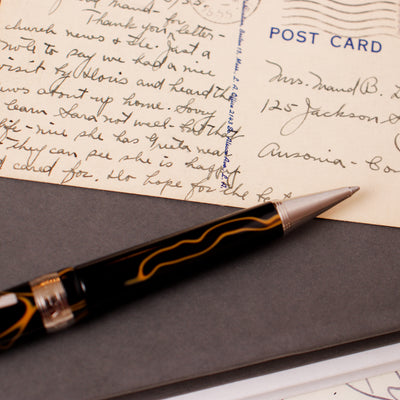 Maud - for
Thank you letter -
church news & etc. Just a
note to say we had a nice
visit by Doris and heard the
news about up home. Sorry
learn Sara not well - but that
life - nice she has Greta near
they can see she is happy
cared for. Do hope for the
POST CARD
Mrs. Maud B.
125 Jackson S
Ansonia - Co